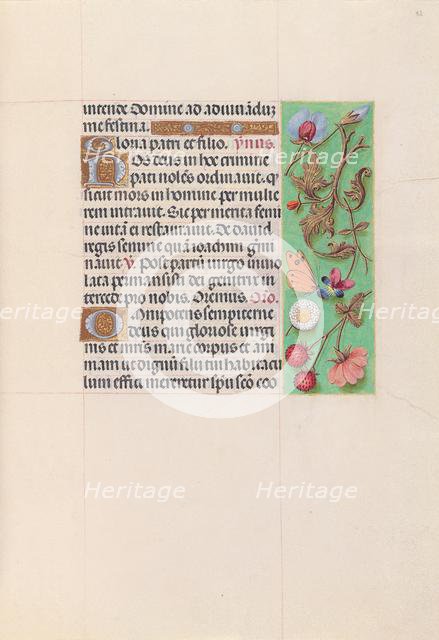 intende Domine ad adiuuandum
me festina.
Gloria patri et filio. ymnus.
Os deus in hoc crimine
pati noles ordinauit. q
sicut mors in homine per mulie
rem intrauit. Sic per merita semi
ne uita et restaurauit. De dauid
regis semine quā ioachim
nauit. V Post partū uirgo inuio
lata permansisti dei genitrix in
tercede pro nobis. Oremus. Oro.
Omnipotens sempiterne
deus qui gloriose uirgi
nis et matris marie corpus et ani
mam ut dignū filii tui habitacu
lum effici mereretur spū scō coo
Heritage
Heritage
Heritage
Heritage
Heritage
Heritage